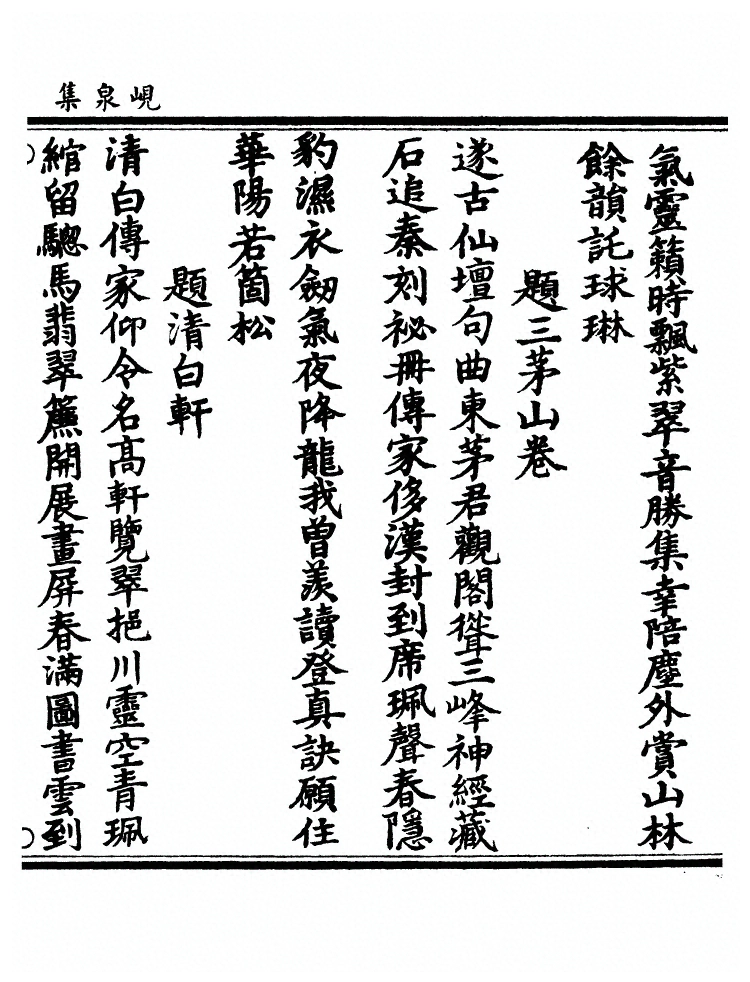 峴泉集
氣靈籟時飄紫翠音勝集幸陪塵外賞山林
餘韻託球琳
題三茅山卷
邃古仙壇句曲東茅君觀閣聳三峰神經藏
石追秦刻祕冊傳家侈漢封到席珮聲春隱
豹濕衣劔氣夜降龍我曾羨讀登真訣願住
華陽若箇松
題清白軒
清白傳家仰令名高軒覽翠挹川靈空青珮
綰留驄馬翡翠簾開展畫屏春滿圖書雲到